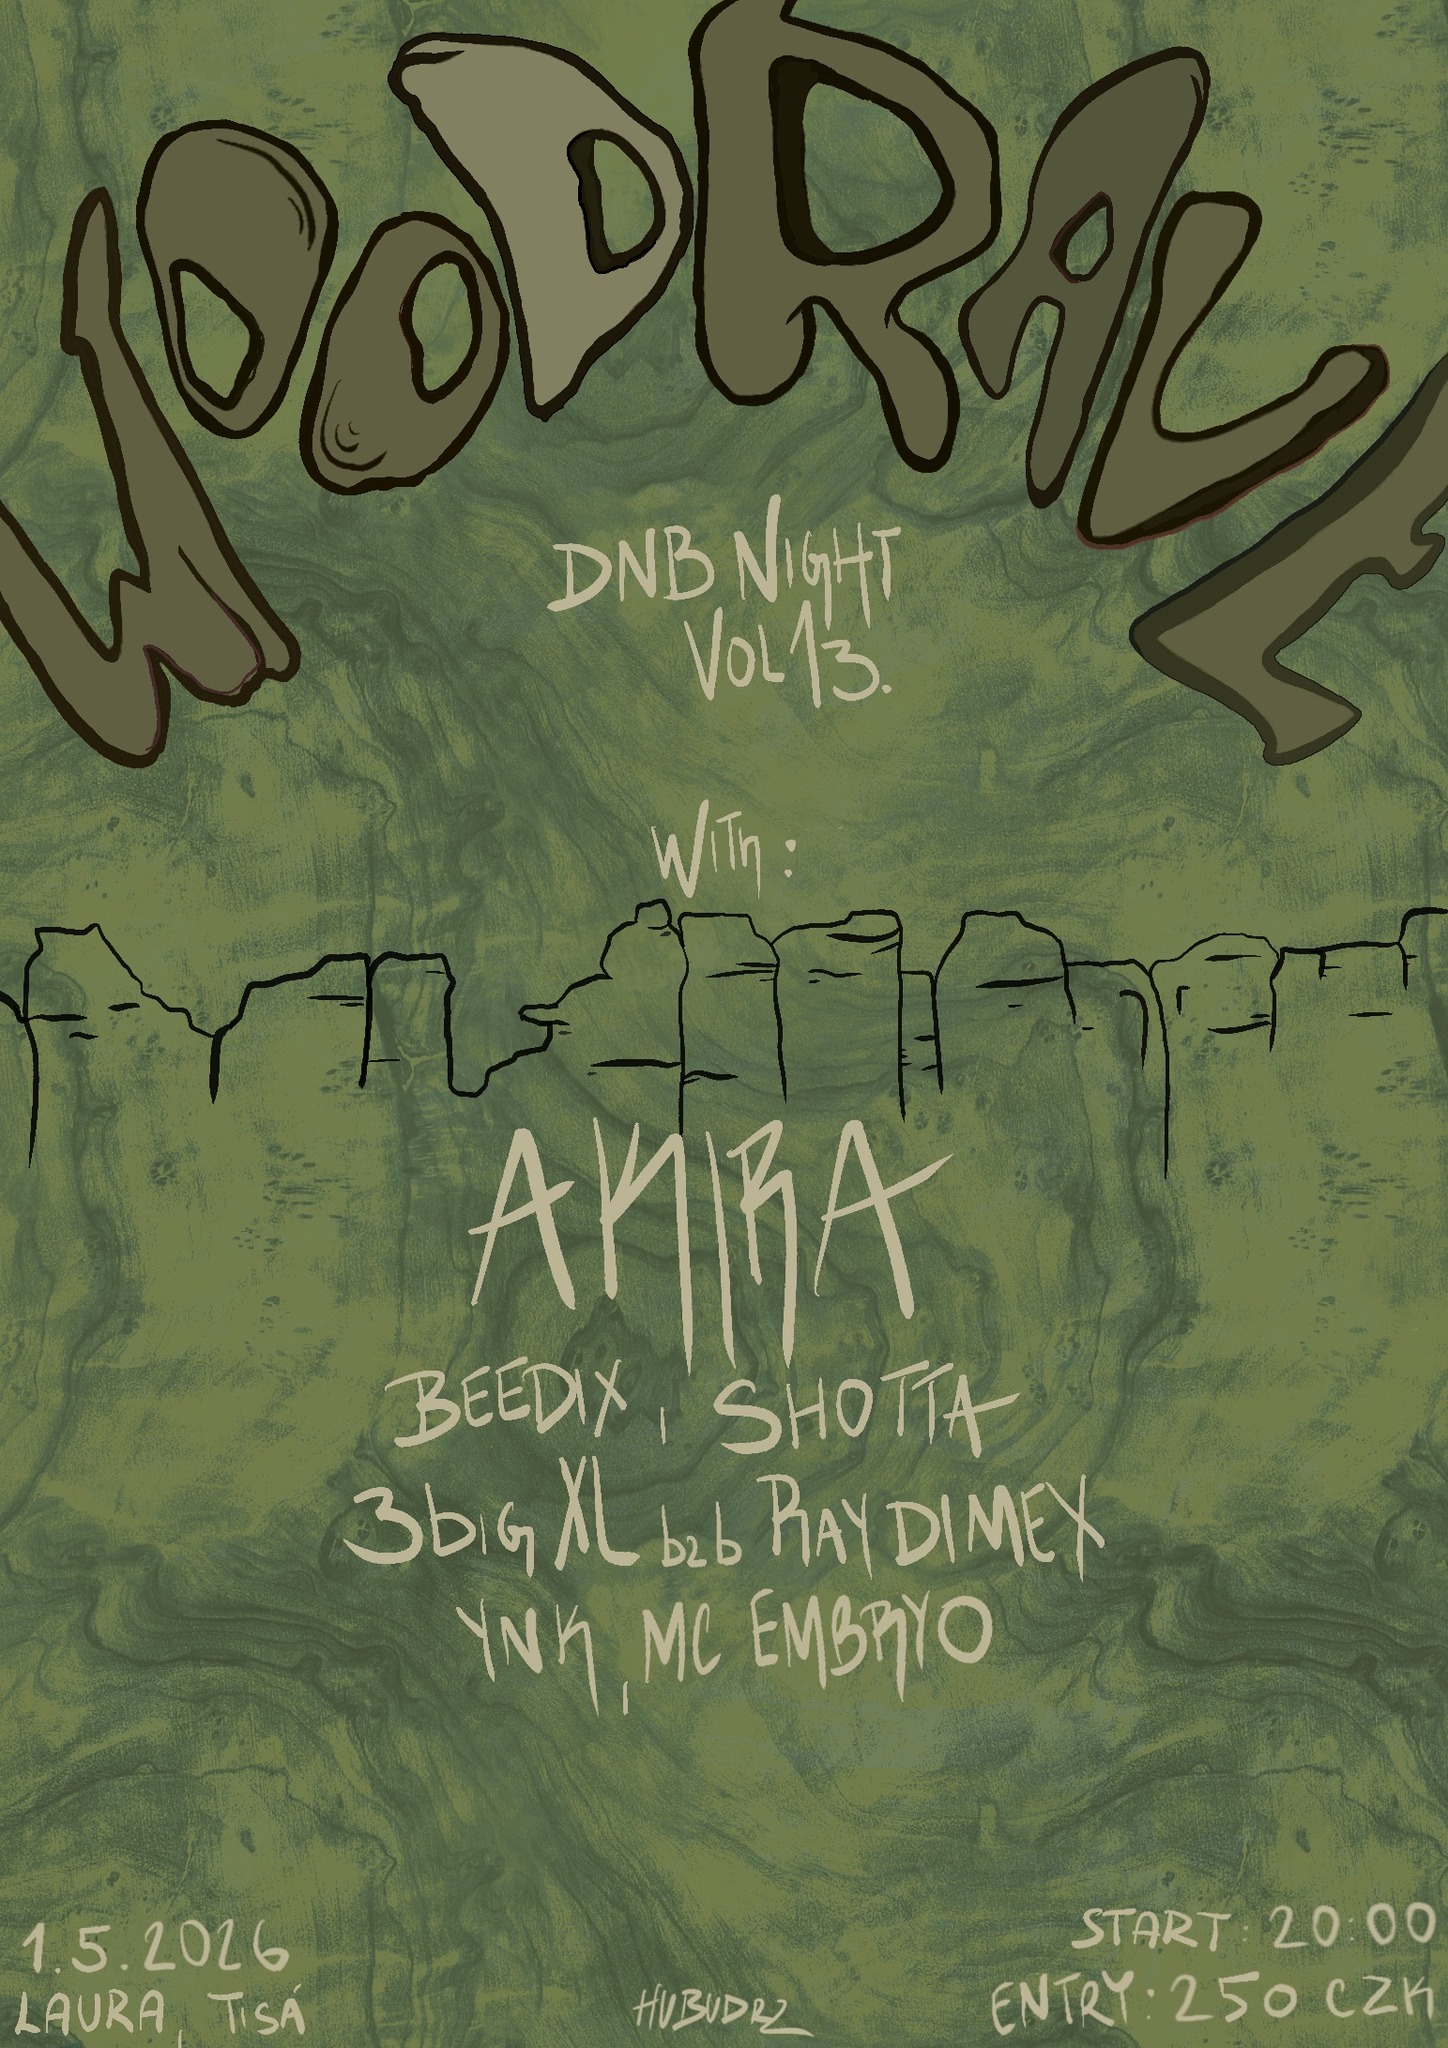 WOODRALE
DNB NIGHT
VOL 13.
WITH :
AKIRA
BEEDIX, SHOTTA
3BIG XL b2b RAY DIMEX
YNK, MC EMBRYO
1.5.2026
LAURA, TISÁ
HUBUDRZ
START: 20:00
ENTRY: 250 CZK